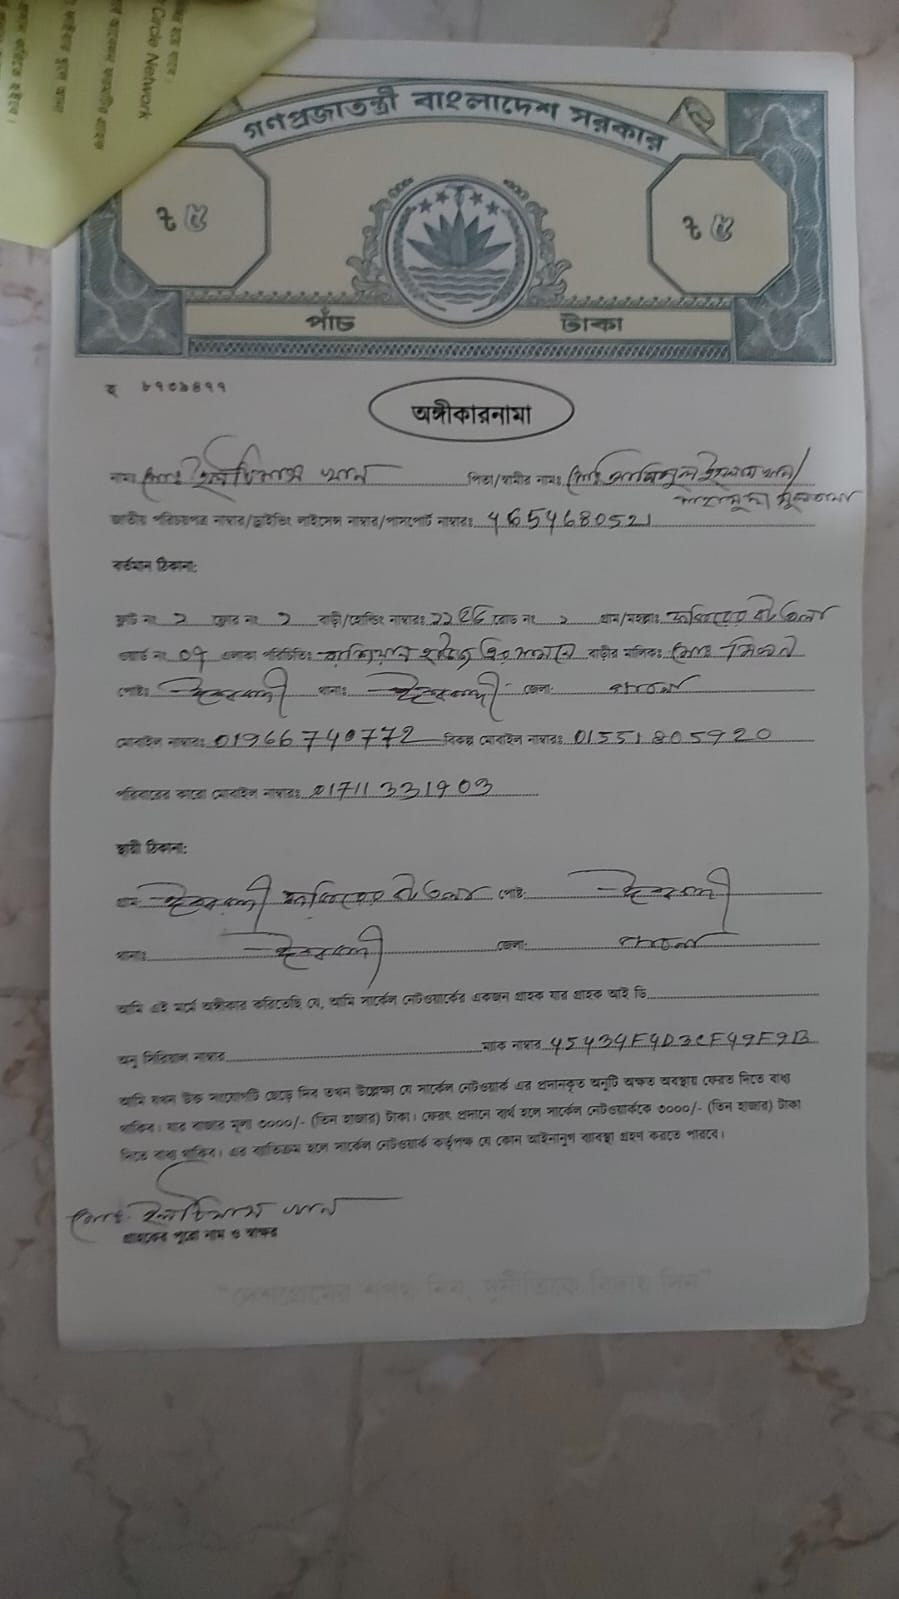 Circle Network
গণপ্রজাতন্ত্রী বাংলাদেশ সরকার
৳ ৫ ৳ ৫
পাঁচ টাকা
হ ৮৭৩৯৪৭৭
অঙ্গীকারনামা
নামঃ মোঃ ইলতিমাস খান পিতা/স্বামীর নামঃ মোঃ আমিনুল ইসলাম খান/
মাহামুদা সুলতানা
জাতীয় পরিচয়পত্র নাম্বার/ড্রাইভিং লাইসেন্স নাম্বার/পাসপোর্ট নাম্বারঃ 4654680521
বর্তমান ঠিকানা:
ফ্লাট নং ২ ফ্লোর নং ১ বাড়ী/হোল্ডিং নাম্বারঃ রোড নং গ্রাম/মহল্লাঃ ফকিরের বটতলা
ওয়ার্ড নং 07 এলাকা পরিচিতিঃ বাড়ীর মালিকঃ মোঃ মিলন
পোষ্টঃ ঈশ্বরদী থানাঃ ঈশ্বরদী জেলা: পাবনা
মোবাইল নাম্বারঃ 01966740772 বিকল্প মোবাইল নাম্বারঃ 01551805920
পরিবারের কারো মোবাইল নাম্বারঃ 01711331903
স্থায়ী ঠিকানা:
গ্রামঃ ঈশ্বরদী ফকিরের বটতলা পোষ্ট: ঈশ্বরদী
থানাঃ ঈশ্বরদী জেলা: পাবনা
আমি এই মর্মে অঙ্গীকার করিতেছি যে, আমি সার্কেল নেটওয়ার্কের একজন গ্রাহক যার গ্রাহক আই ডি
অনু সিরিয়াল নাম্বার ম্যাক নাম্বার 45434F4D3CF49F9B
আমি যখন উক্ত সংযোগটি ছেড়ে দিব তখন উল্লেক্ষ্য যে সার্কেল নেটওয়ার্ক এর প্রদানকৃত অনুটি অক্ষত অবস্থায় ফেরত দিতে বাধ্য
থাকিব। যার বাজার মূল্য ৩০০০/- (তিন হাজার) টাকা। ফেরৎ প্রদানে ব্যর্থ হলে সার্কেল নেটওয়ার্ককে ৩০০০/- (তিন হাজার) টাকা
দিতে বাধ্য থাকিব। এর ব্যতিক্রম হলে সার্কেল নেটওয়ার্ক কর্তৃপক্ষ যে কোন আইনানুগ ব্যবস্থা গ্রহণ করতে পারবে।
মোঃ ইলতিমাস খান
গ্রাহকের পুরো নাম ও স্বাক্ষর
"দেশপ্রেমের শপথ নিন, দুর্নীতিকে বিদায় দিন"